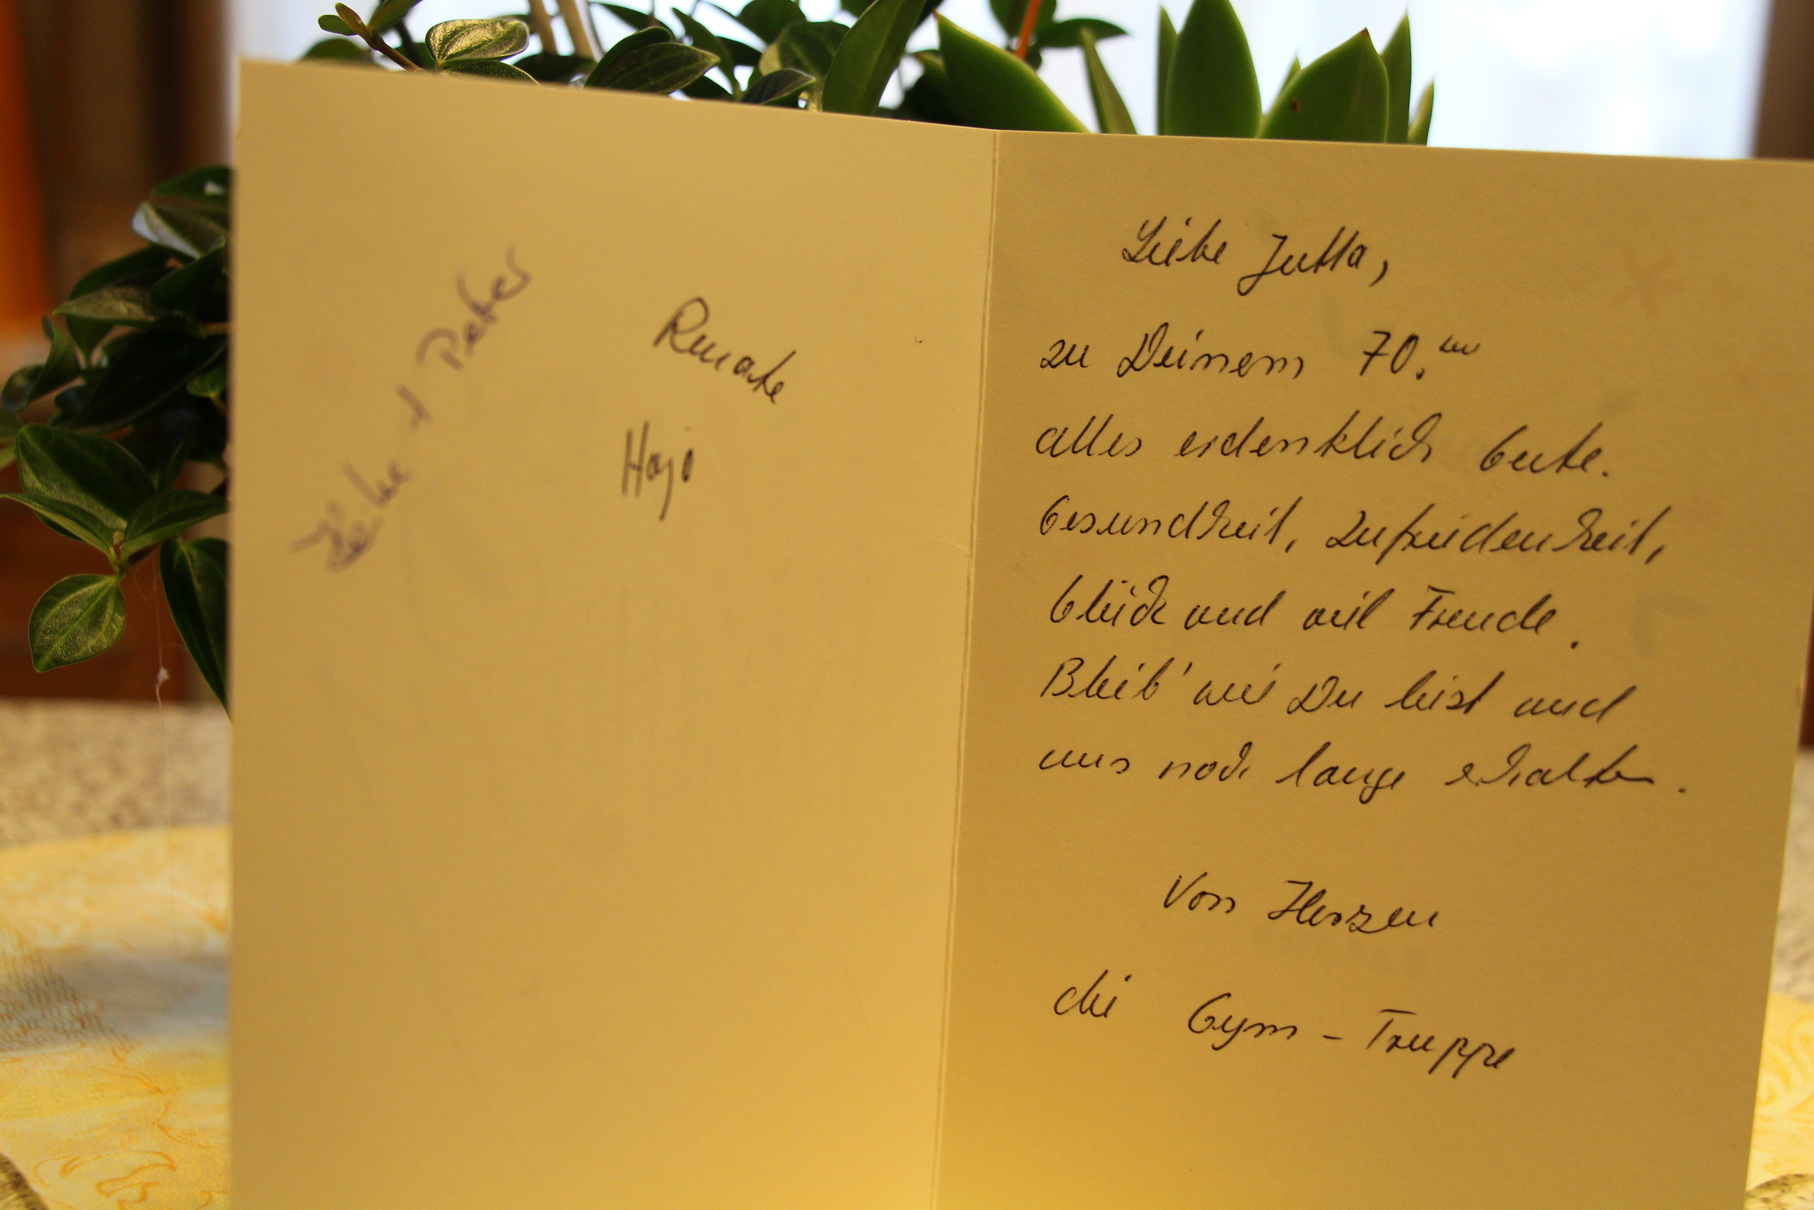 + Peter
Renate
Hajo
Liebe Jutta,
zu Deinem 70.ten
alles erdenklich Gute.
Gesundheit, Zufriedenheit,
Glück und viel Freude.
Bleib' wie Du bist und
uns noch lange erhalten.
Von Herzen
die Gym-Truppe